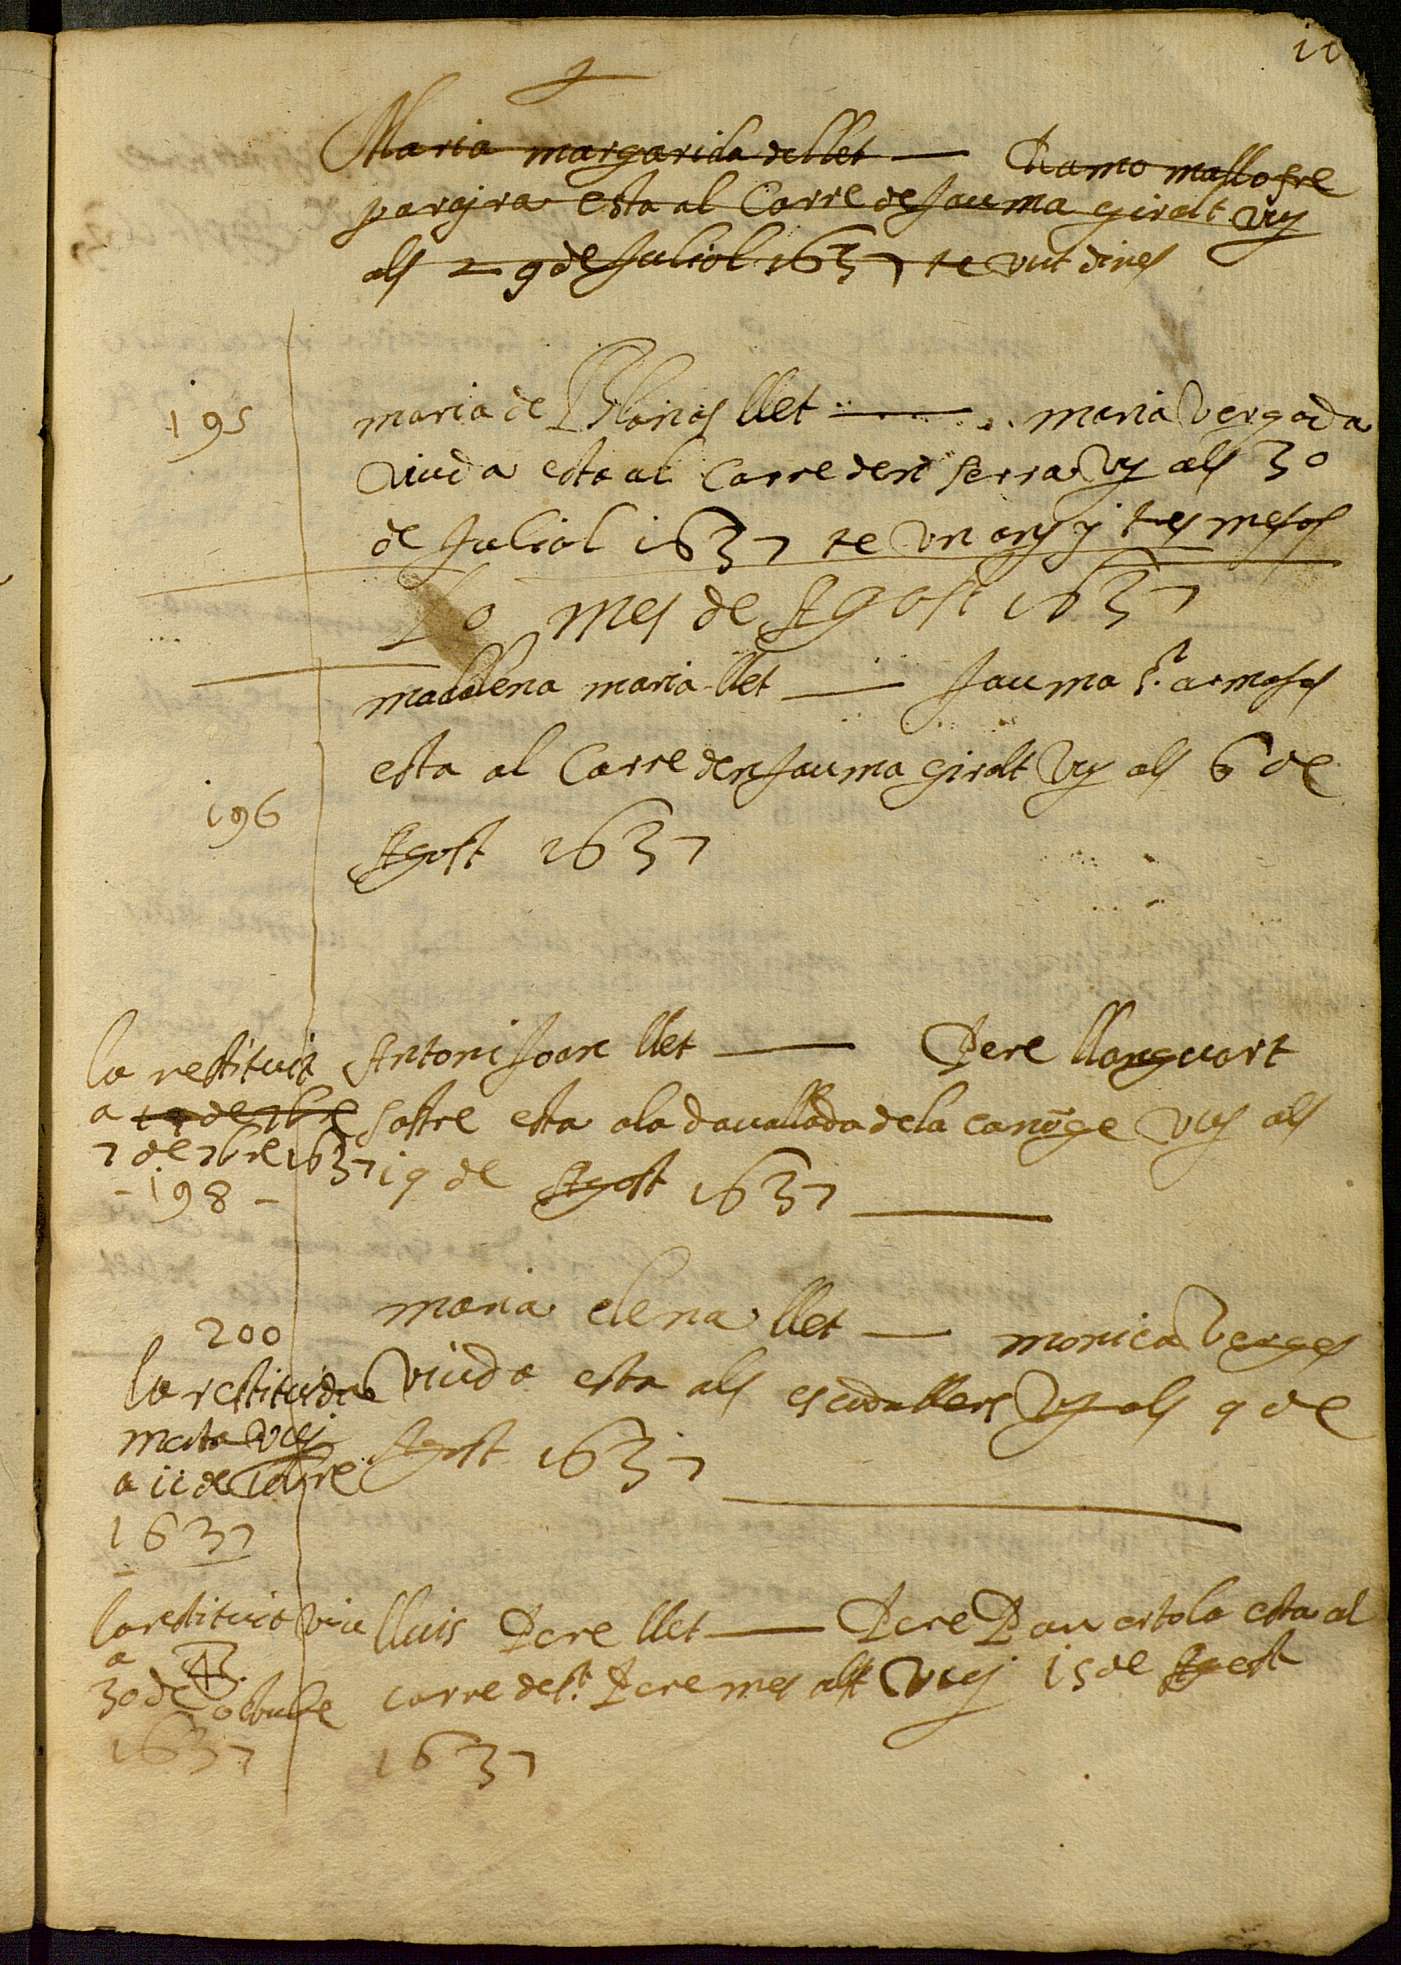 Maria margarida de llet — Ramo mallofre
parayra esta al Carre de Jauma giralt vuy
als 29 de Juliol 1637 te vuit dines
195
maria de Planas llet — maria Vergada
Viuda esta al Carre den serra Vy als 30
de Juliol 1637 te vn any y tres mesos
Lo mes de Agost 1637
madalena maria llet — Jauma armasos
esta al Carre den Jauma giralt Vuy als 6 de
196
Agost 1637
la restituit
a 19 de 7bre
7 de 7bre 1637
- 198 -
Antoni Joan llet — Pere llonguart
sastre esta ala davallada dela canoge vuy als
19 de Agost 1637
200
la restituida
morta vuy
a 11 de
1637
maria elena llet — monica Verges
Viuda esta als escudellers Vy als 9 de
Agost 1637
la restituit viu
a
30 de octubre
1637
lluis Pere llet — Pere Pau artola esta al
carre de st. Pere mes alt Vuy 15 de Agost
1637